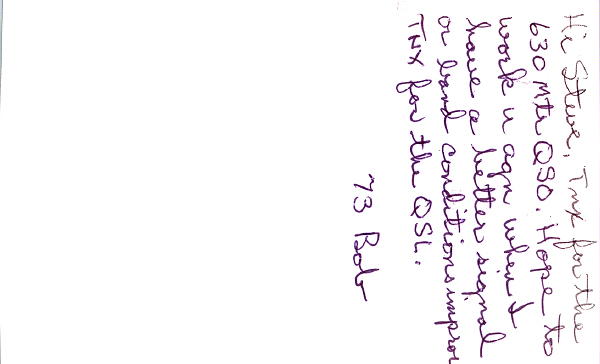 Hi Steve, Tnx for the
630 Mtr QSO. Hope to
work u agn when I
have a better signal
or band conditions improv
TNX for the QSL.
73 Bob